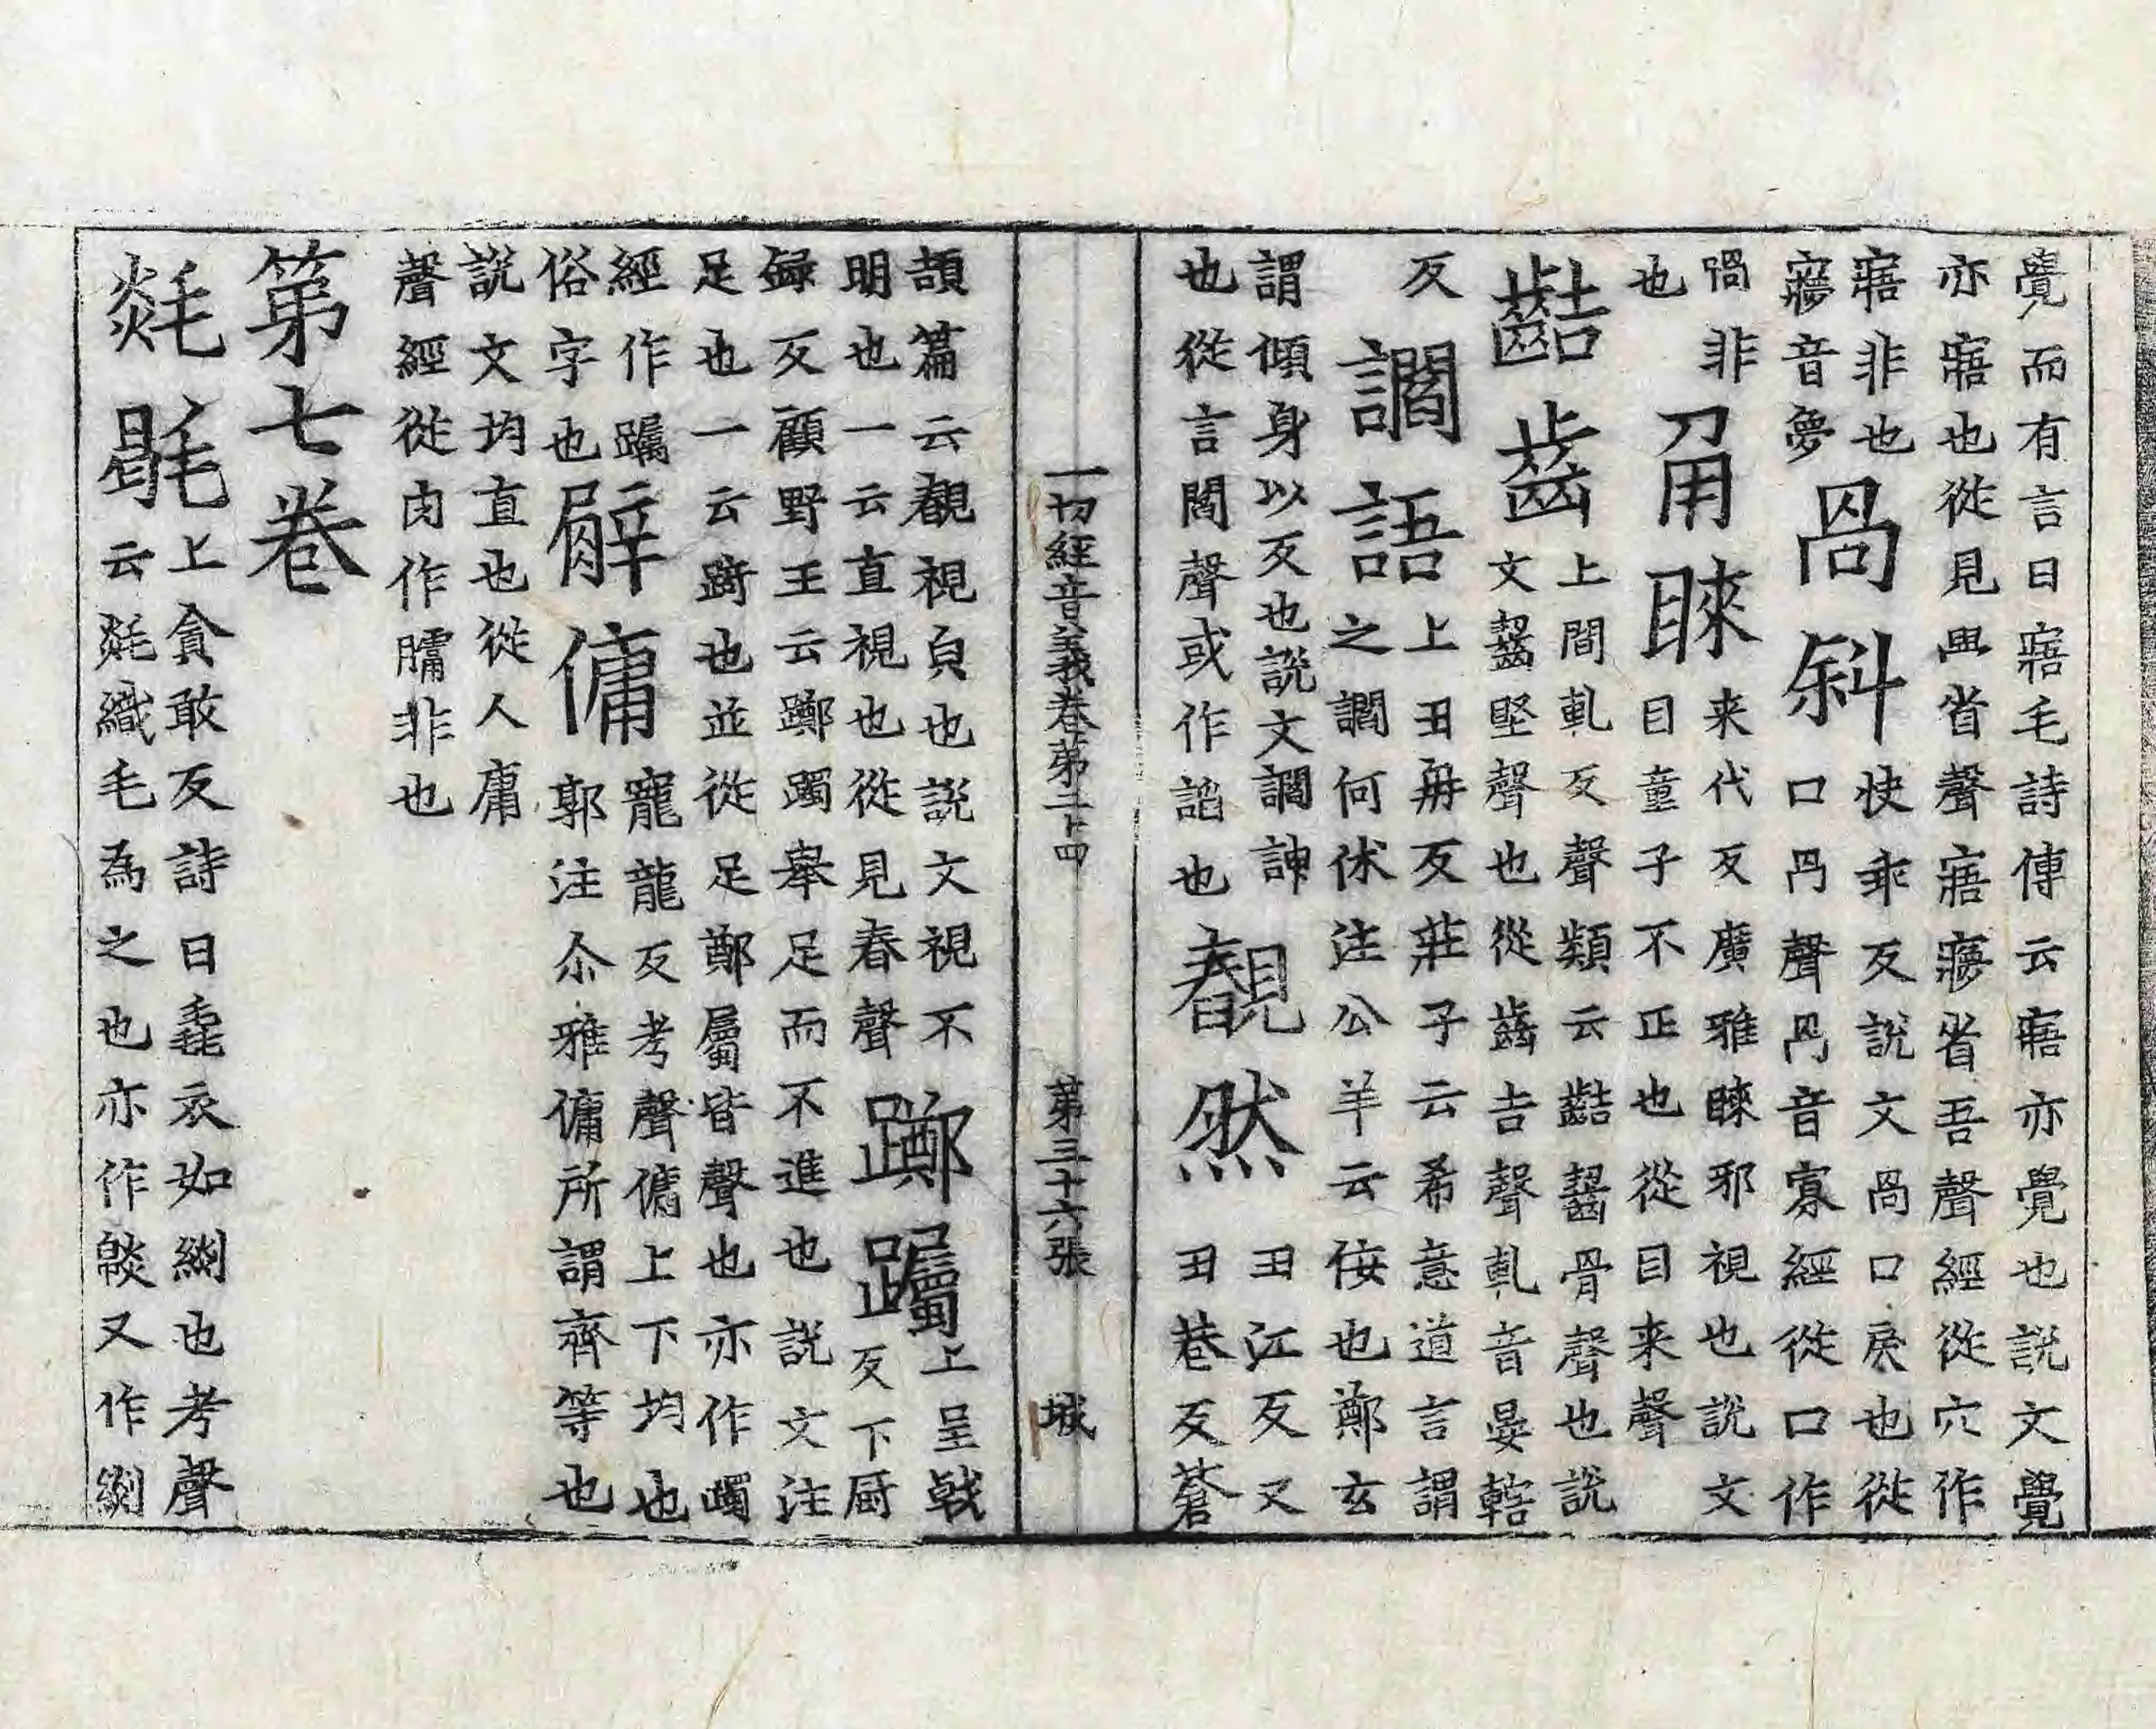 覺而有言曰寤毛詩傳云寤亦覺也說文覺
亦寤也從見𦥯省聲寤㝱省吾聲經從穴作
寤非也
㝱音夢
咼斜
快乖反說文咼口戾也從
口冎聲冎音寡經從口作
喎非
也
䀏睞
来代反廣雅睞邪視也說文
目童子不正也從目来聲
齰齒
上間軋反聲類云齰齧骨聲也說
文齧堅聲也從齒吉聲軋音晏轄
反
讇語
上丑冉反莊子云希意道言謂
之讇何休注公羊云佞也鄭玄
謂傾身以反也說文讇諛
也從言閻聲或作諂也
覩然
丑江反又
丑巷反蒼
一切經音義卷第二十四
第三十六張
城
頡篇云覩視皃也說文視不
明也一云直視也從見春聲
躑躅
上呈戟
反下厨
録反顧野王云躑躅舉足而不進也說文注
足也一云蹢也並從足鄭屬皆聲也亦作躅
經作躅
俗字也
𦡱傭
寵龍反考聲傭上下均也
郭注尒雅傭所謂齊等也
說文均直也從人庸
聲經從肉作𦡱非也
第七卷
毯毦
上貪敢反詩曰毳衣如緂也考聲
云毯織毛為之也亦作緂又作緂